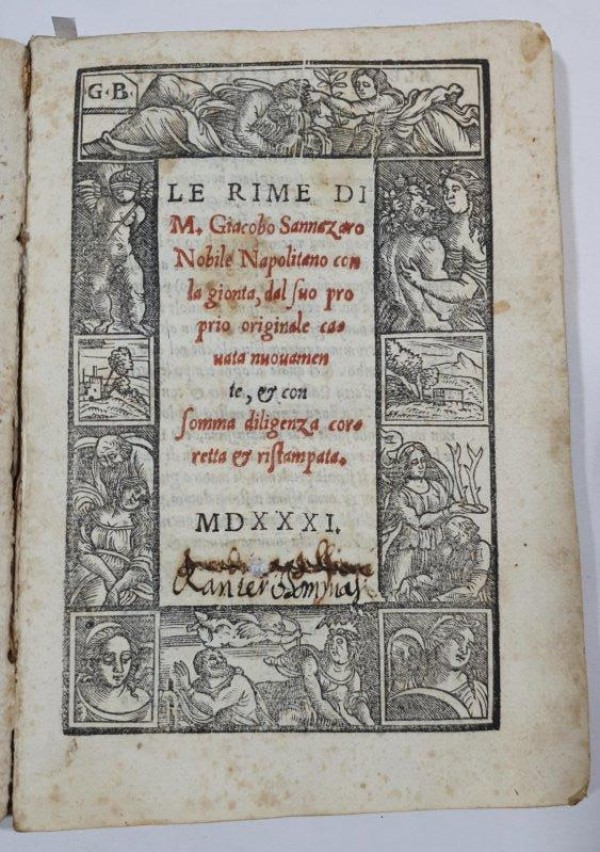 G·B·
LE RIME DI
M. Giacobo Sannazaro
Nobile Napolitano con
la gionta, dal suo pro
prio originale ca-
uata nuouamen
te, & con
somma diligenza cor-
retta & ristampata.
MDXXXI.
Ranier